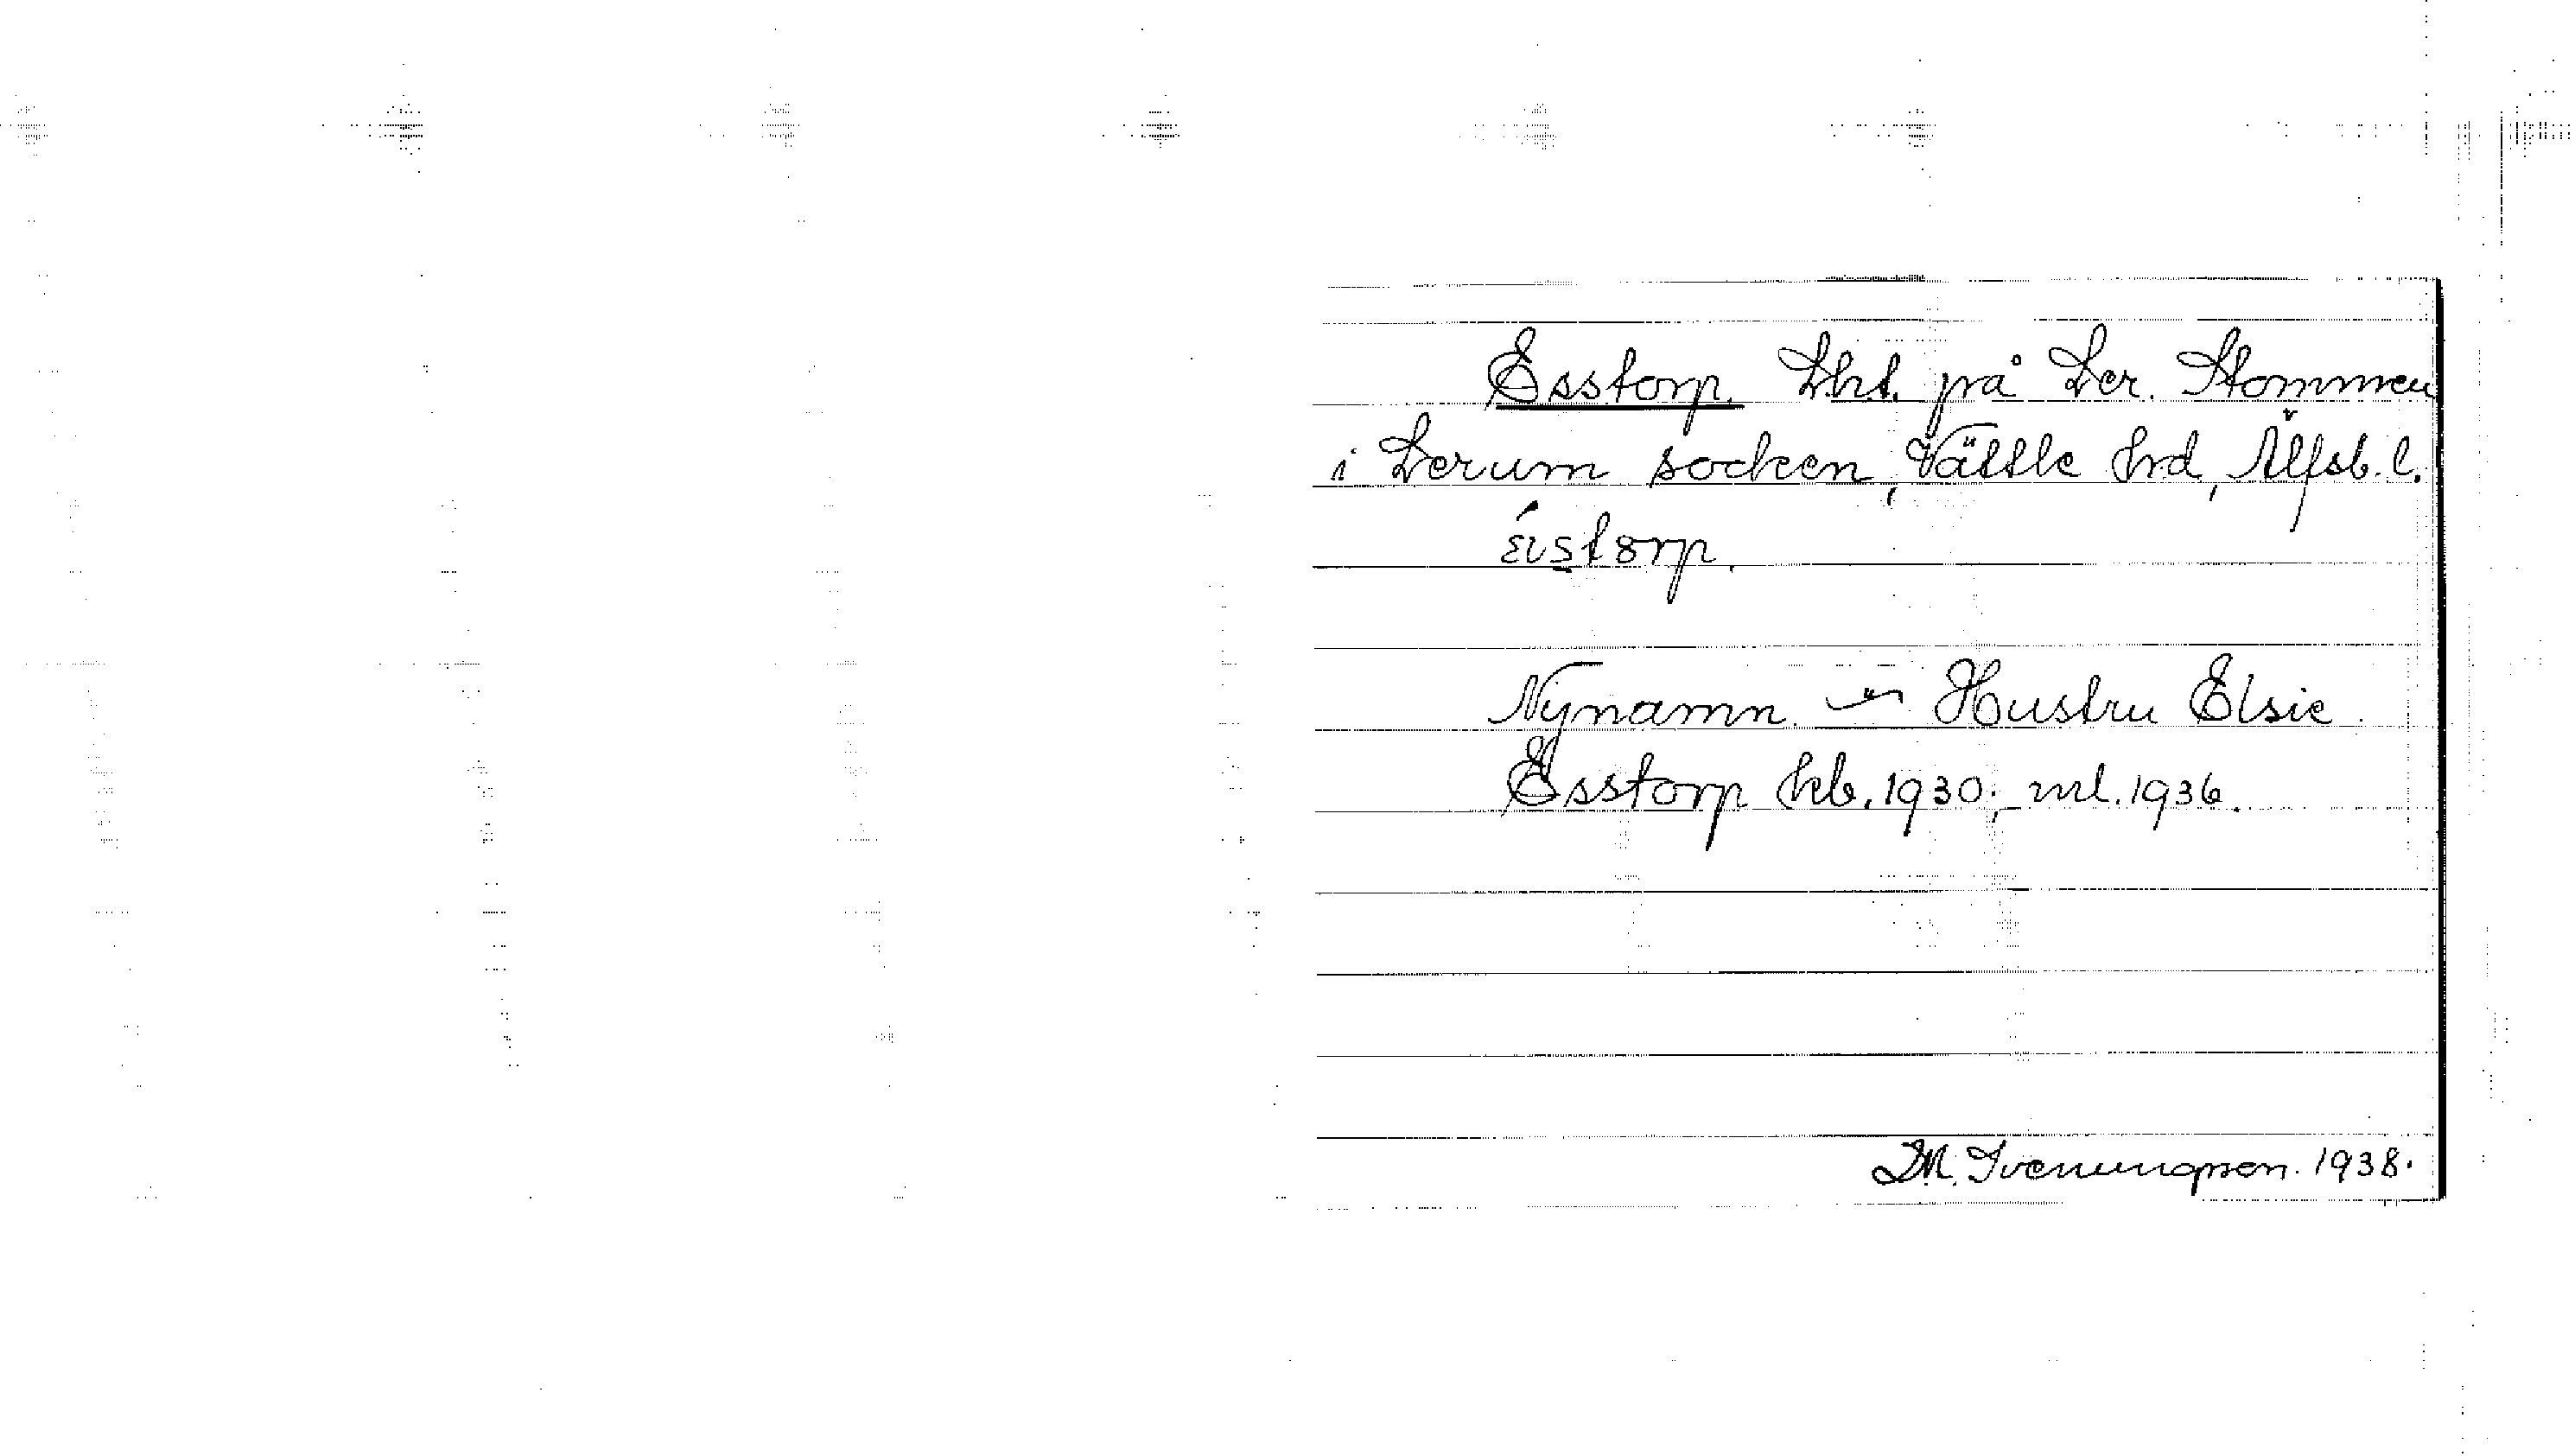 Esstorp. Lht. på Ler. Stommen
i Lerum socken, Vättle hrd, Älfsb. l.
ɛ́ıstɔrp.
Nynamn. Hustru Elsie
Esstorp kb. 1930; ml. 1936.
D.M. Svenungsson. 1938.